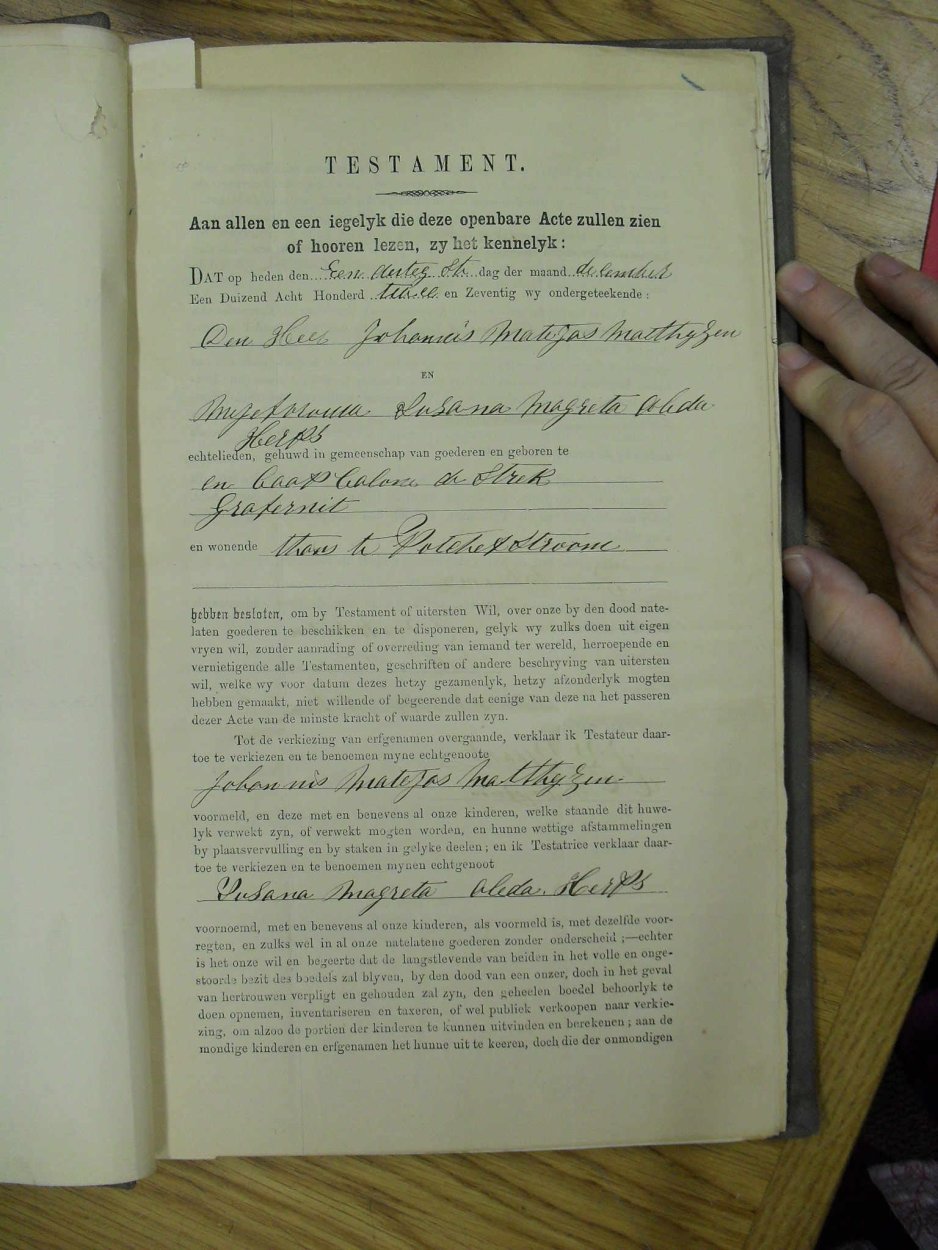 TESTAMENT.
Aan allen en een iegelyk die deze openbare Acte zullen zien
of hooren lezen, zy het kennelyk:
DAT op heden den Een dag der maand
Een Duizend Acht Honderd en Zeventig wy ondergeteekende:
Den Heer Johannis Matejas Matthyzen
EN
Susana Magreta Aleda
Herps
echtelieden, gehuwd in gemeenschap van goederen en geboren te
en Caap Colone
en wonende thans te Potchefstroom
hebben besloten, om by Testament of uitersten Wil, over onze by den dood nate-
laten goederen te beschikken en te disponeren, gelyk wy zulks doen uit eigen
vryen wil, zonder aanrading of overreding van iemand ter wereld, herroepende en
vernietigende alle Testamenten, geschriften of andere beschryving van uitersten
wil, welke wy voor datum dezes hetzy gezamenlyk, hetzy afzonderlyk mogten
hebben gemaakt, niet willende of begeerende dat eenige van deze na het passeren
dezer Acte van de minste kracht of waarde zullen zyn.
Tot de verkiezing van erfgenamen overgaande, verklaar ik Testateur daar-
toe te verkiezen en te benoemen myne echtgenoote
Johannis Matejas Matthyzen
voormeld, en deze met en benevens al onze kinderen, welke staande dit huwe-
lyk verwekt zyn, of verwekt mogten worden, en hunne wettige afstammelingen
by plaatsvervulling en by staken in gelyke deelen; en ik Testatrice verklaar daar-
toe te verkiezen en te benoemen mynen echtgenoot
Susana Magreta Aleda Herps
voornoemd, met en benevens al onze kinderen, als voormeld is, met dezelfde voor-
regten, en zulks wel in al onze natelatene goederen zonder onderscheid;—echter
is het onze wil en begeerte dat de langstlevende van beiden in het volle en onge-
stoorde bezit des boedels zal blyven, by den dood van een onzer, doch in het geval
van hertrouwen verpligt en gehouden zal zyn, den geheelen boedel behoorlyk te
doen opnemen, inventariseren en taxeren, of wel publiek verkoopen naar verkie-
zing, om alzoo de portien der kinderen te kunnen uitvinden en berekenen; aan de
mondige kinderen en erfgenamen het hunne uit te keeren, doch die der onmondigen